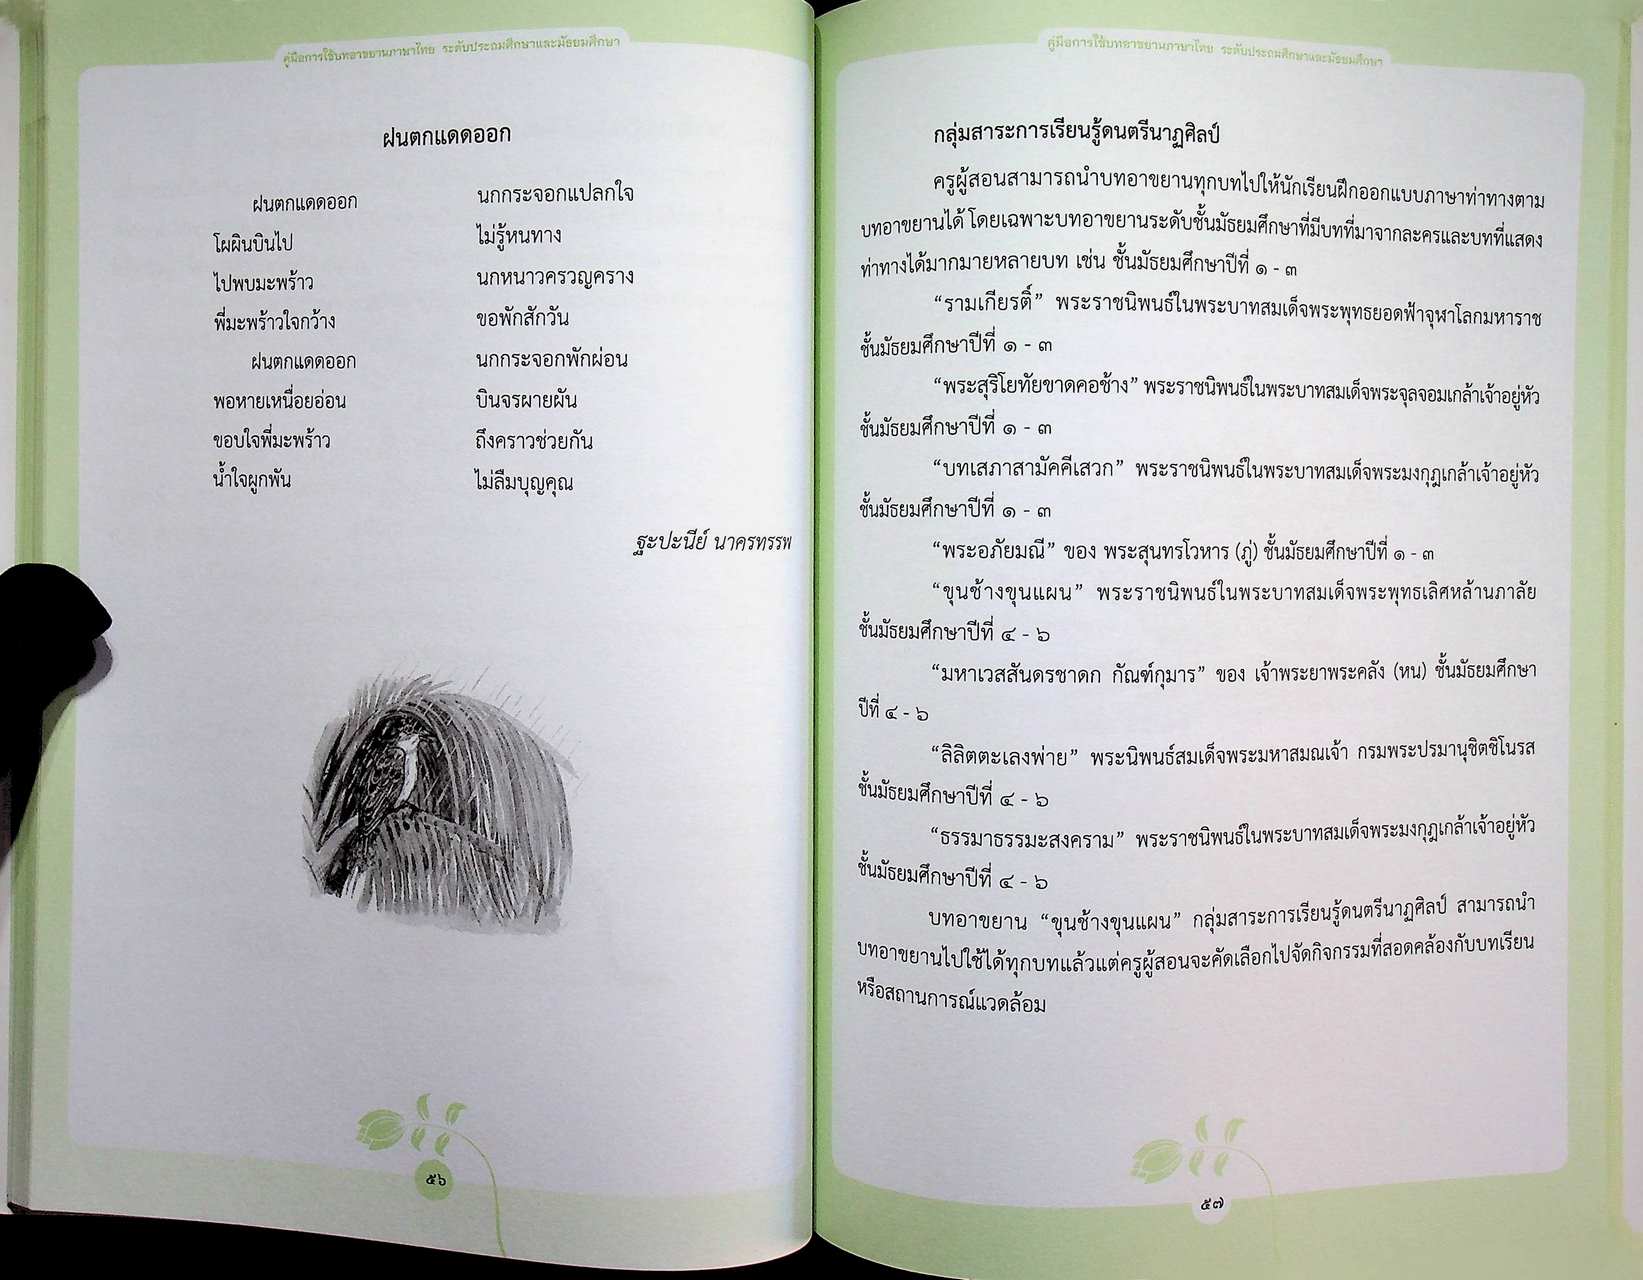 คู่มือการใช้บทอาขยานภาษาไทย ระดับประถมศึกษาและมัธยมศึกษา
ฝนตกแดดออก
ฝนตกแดดออก นกกระจอกแปลกใจ
โผผินบินไป ไม่รู้หนทาง
ไปพบมะพร้าว นกหนาวครวญคราง
พี่มะพร้าวใจกว้าง ขอพักสักวัน
ฝนตกแดดออก นกกระจอกพักผ่อน
พอหายเหนื่อยอ่อน บินจรผายผัน
ขอบใจพี่มะพร้าว ถึงคราวช่วยกัน
น้ำใจผูกพัน ไม่ลืมบุญคุณ
ฐะปะนีย์ นาครทรรพ
๕๖
คู่มือการใช้บทอาขยานภาษาไทย ระดับประถมศึกษาและมัธยมศึกษา
กลุ่มสาระการเรียนรู้ดนตรีนาฏศิลป์
ครูผู้สอนสามารถนำบทอาขยานทุกบทไปให้นักเรียนฝึกออกแบบภาษาท่าทางตาม
บทอาขยานได้ โดยเฉพาะบทอาขยานระดับชั้นมัธยมศึกษาที่มีบทที่มาจากละครและบทที่แสดง
ท่าทางได้มากมายหลายบท เช่น ชั้นมัธยมศึกษาปีที่ ๑ - ๓
“รามเกียรติ์” พระราชนิพนธ์ในพระบาทสมเด็จพระพุทธยอดฟ้าจุฬาโลกมหาราช
ชั้นมัธยมศึกษาปีที่ ๑ - ๓
“พระสุริโยทัยขาดคอช้าง” พระราชนิพนธ์ในพระบาทสมเด็จพระจุลจอมเกล้าเจ้าอยู่หัว
ชั้นมัธยมศึกษาปีที่ ๑ - ๓
“บทเสภาสามัคคีเสวก” พระราชนิพนธ์ในพระบาทสมเด็จพระมงกุฎเกล้าเจ้าอยู่หัว
ชั้นมัธยมศึกษาปีที่ ๑ - ๓
“พระอภัยมณี” ของ พระสุนทรโวหาร (ภู่) ชั้นมัธยมศึกษาปีที่ ๑ - ๓
“ขุนช้างขุนแผน” พระราชนิพนธ์ในพระบาทสมเด็จพระพุทธเลิศหล้านภาลัย
ชั้นมัธยมศึกษาปีที่ ๔ - ๖
“มหาเวสสันดรชาดก กัณฑ์กุมาร” ของ เจ้าพระยาพระคลัง (หน) ชั้นมัธยมศึกษา
ปีที่ ๔ - ๖
“ลิลิตตะเลงพ่าย” พระนิพนธ์สมเด็จพระมหาสมณเจ้า กรมพระปรมานุชิตชิโนรส
ชั้นมัธยมศึกษาปีที่ ๔ - ๖
“ธรรมาธรรมะสงคราม” พระราชนิพนธ์ในพระบาทสมเด็จพระมงกุฎเกล้าเจ้าอยู่หัว
ชั้นมัธยมศึกษาปีที่ ๔ - ๖
บทอาขยาน “ขุนช้างขุนแผน” กลุ่มสาระการเรียนรู้ดนตรีนาฏศิลป์ สามารถนำ
บทอาขยานไปใช้ได้ทุกบทแล้วแต่ครูผู้สอนจะคัดเลือกไปจัดกิจกรรมที่สอดคล้องกับบทเรียน
หรือสถานการณ์แวดล้อม
๕๗